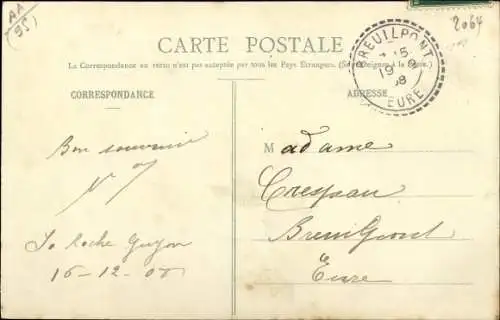 AA
(95)
2064
CARTE POSTALE
La Correspondance au recto n'est pas acceptée par tous les Pays Étrangers. (Se renseigner à la Poste.)
BREUILPONT
15
19
08
EURE
CORRESPONDANCE
ADRESSE
Bon souvenir
La Roche Guyon
16-12-08
Madame
Crespau
Breuilpont
Eure